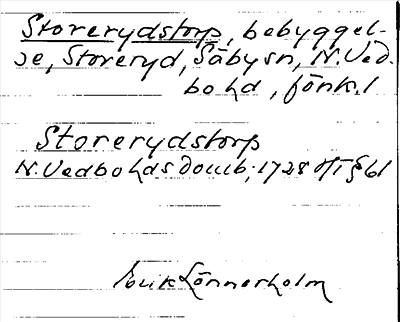 Storerydstorp, bebyggel-
se, Storeryd, Säbysn, N. Ved-
bohd, Jönk. l
Storerydstorp
N. Vedbohds Domb; 1728 § 61
Erik Lönnerholm